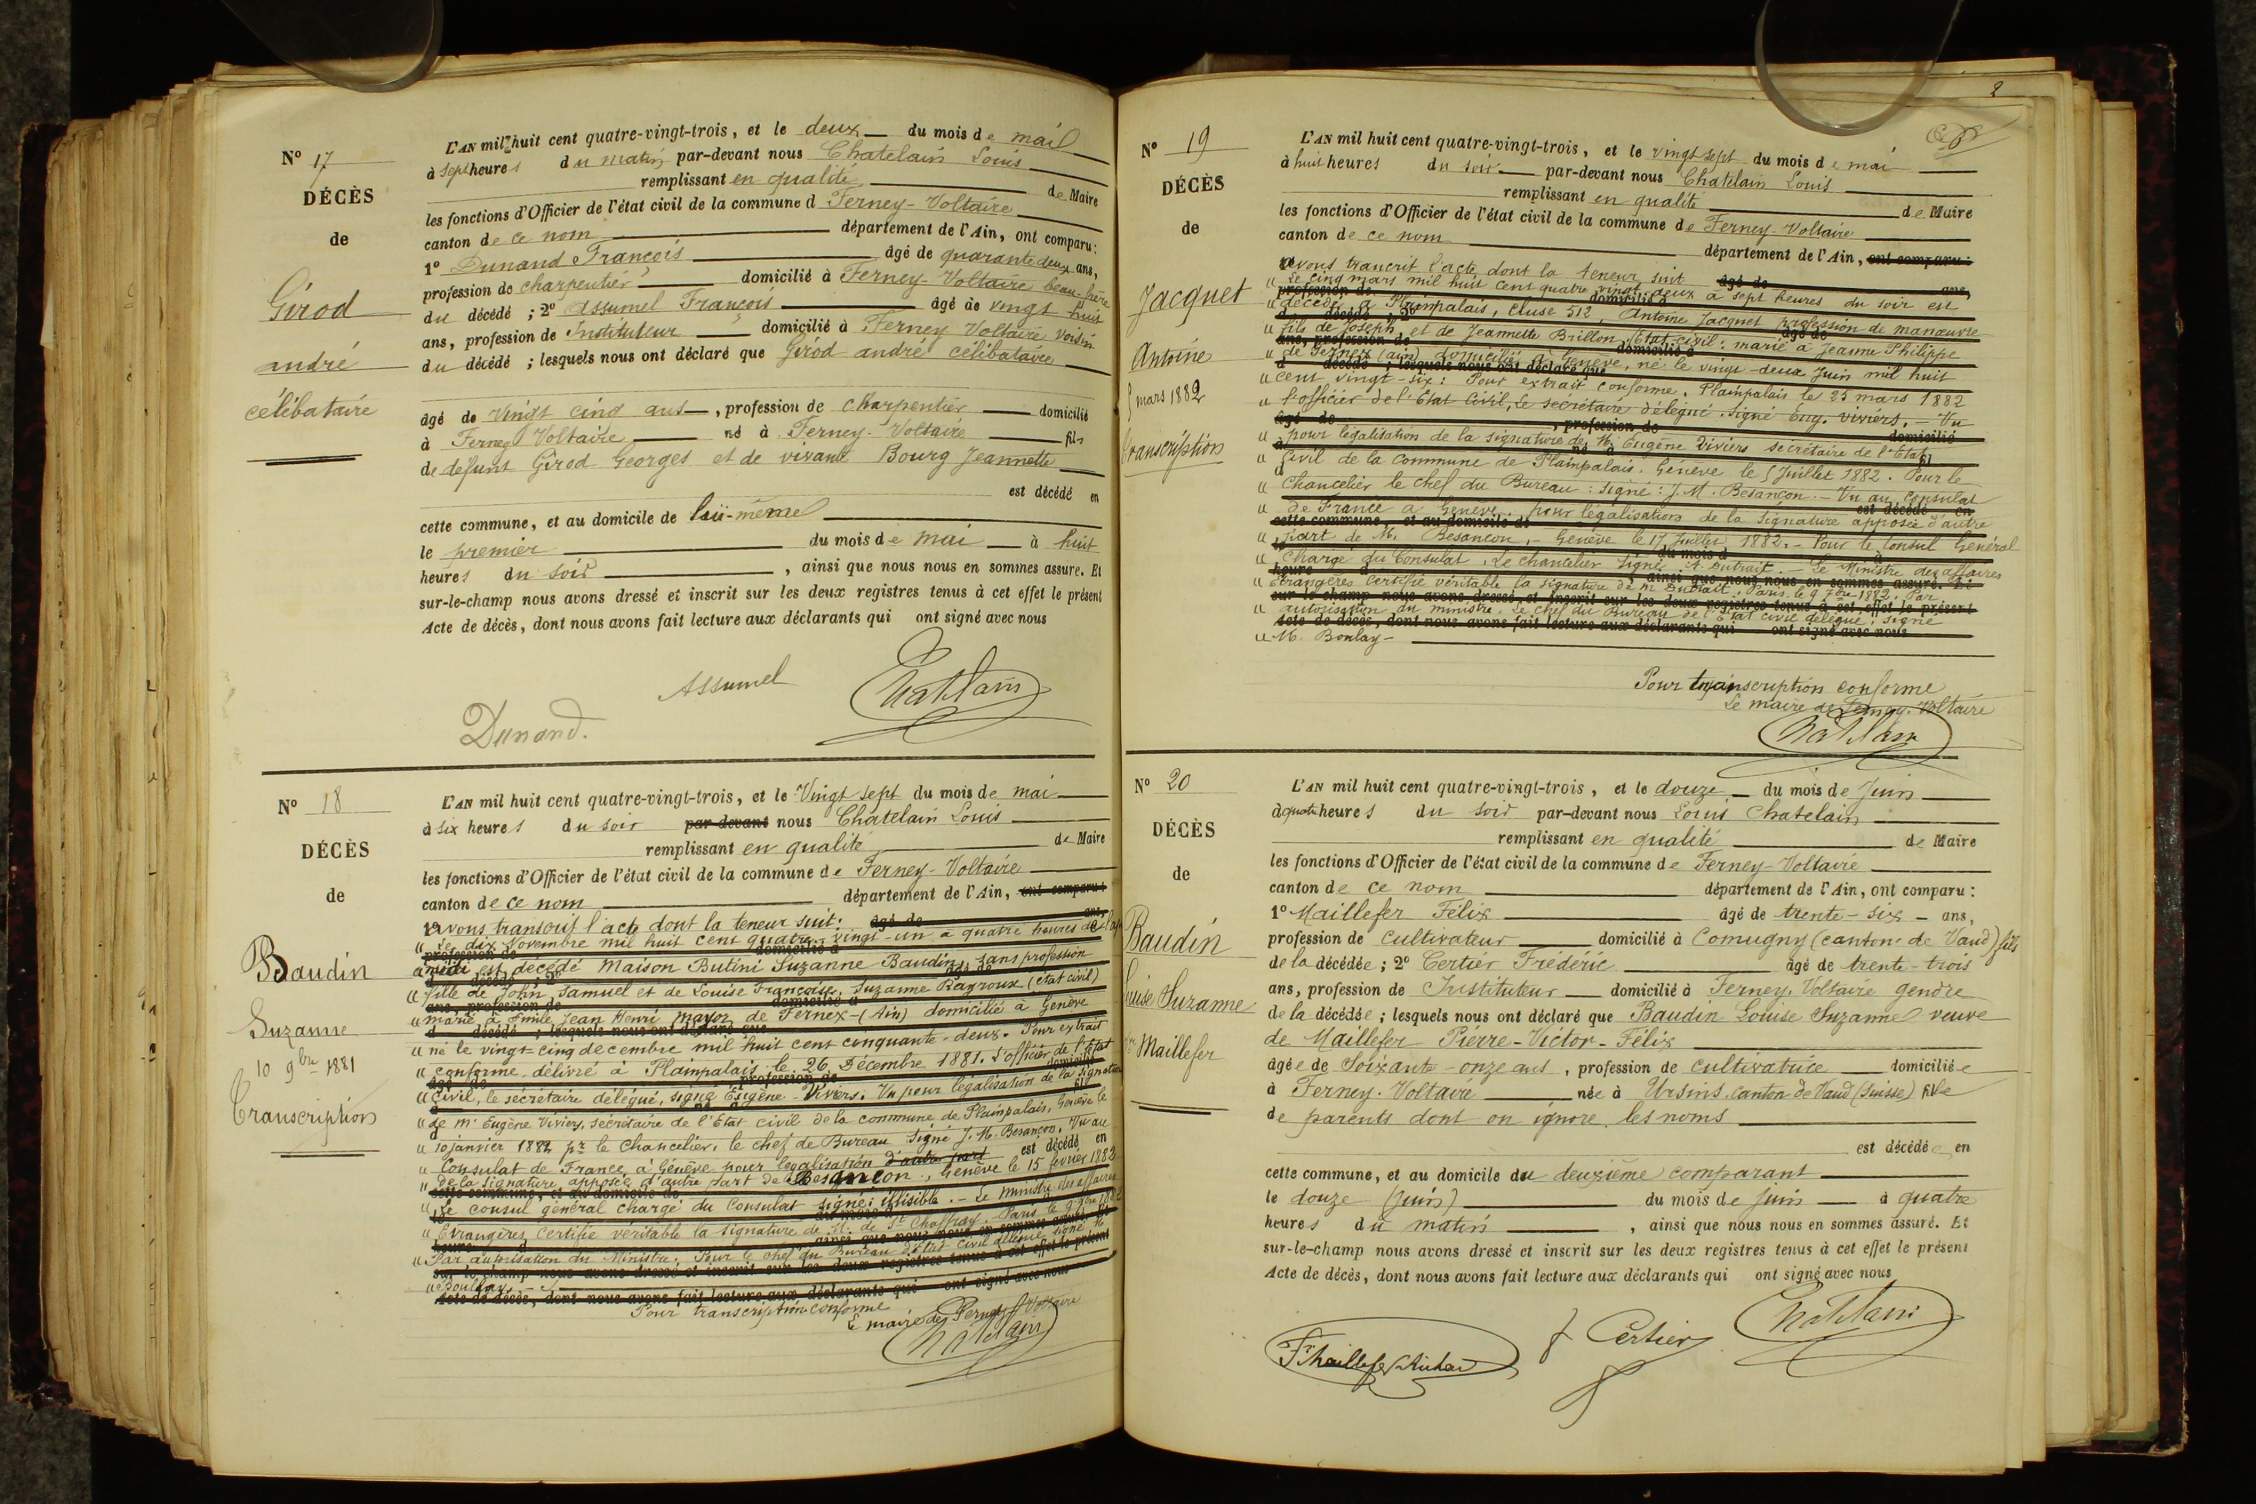 N° 17
DÉCÈS
de
Girod
andré
célibataire
L'AN mil huit cent quatre-vingt-trois, et le deux du mois de mai
à sept heures du matin par-devant nous Chatelain Louis
remplissant en qualité de Maire
les fonctions d'Officier de l'état civil de la commune d Ferney-Voltaire
canton de ce nom département de l'Ain, ont comparu:
1° Dunand François âgé de quarante deux ans,
profession de charpentier domicilié à Ferney-Voltaire beau-frère
du décédé ; 2° assumel François âgé de vingt huit
ans, profession de Instituteur domicilié à Ferney Voltaire voisin
du décédé ; lesquels nous ont déclaré que Girod andré célibataire
âgé de vingt cinq ans, profession de charpentier domicilié
à Ferney Voltaire né à Ferney-Voltaire fils
de défunt Girod Georges et de vivante Bourg Jeannette
est décédé en
cette commune, et au domicile de lui-même
le premier du mois de mai à huit
heures du soir, ainsi que nous nous en sommes assuré. Et
sur-le-champ nous avons dressé et inscrit sur les deux registres tenus à cet effet le présent
Acte de décès, dont nous avons fait lecture aux déclarants qui ont signé avec nous
Assumel
Chatelain
Dunand.
N° 18
DÉCÈS
de
Baudin
Suzanne
10 9bre 1881
Transcription
L'AN mil huit cent quatre-vingt-trois, et le Vingt sept du mois de mai
à six heures du soir par-devant nous Chatelain Louis
remplissant en qualité de Maire
les fonctions d'Officier de l'état civil de la commune de Ferney-Voltaire
canton de ce nom département de l'Ain, ont comparu:
avons transcrit l'acte dont la teneur suit:
" Le dix Novembre mil huit cent quatre-vingt-un à quatre heures de l'ap
a midi est décédé Maison Butini Suzanne Baudin, sans profession
" fille de John Samuel et de Louise Françoise, Suzanne Pagroux (état civil)
" marié à Emile Jean Henri Mayor de Fernex-(Ain) domicilié à Genève
" né le vingt-cinq décembre mil huit cent cinquante-deux. Pour extrait
" conforme délivré à Plampalais le 26 Décembre 1881. L'officier de l'Etat
" civil, le secrétaire délégué, signé Eugène-Viviers. Vu pour légalisation de la signature
" de Mr Eugène Viviers, secrétaire de l'Etat civil de la commune de Plainpalais, Genève le
" 10 janvier 1882 pr le Chancelier, le chef de Bureau signé J. M. Besançon. Vu au
" Consulat de France à Génève pour légalisation d'autre part
" de la signature apposée d'autre part de Besançon, Genève le 15 février 1882
" Le consul général chargé du Consulat signé: illisible. - Le ministre des affaires
" Etrangères, certifie véritable la signature de M. de St Chaffray. Paris le 9 7bre 1882
" Par autorisation du Ministre, Pour le chef du Bureau d'Etat civil délégué, signé M
" Boulay.
Pour transcription conforme
Le maire de Ferney Voltaire
Chatelain
2
N° 19
DÉCÈS
de
Jacquet
Antoine
5 mars 1882
Transcription
L'AN mil huit cent quatre-vingt-trois, et le vingt sept du mois de mai
à huit heures du soir par-devant nous Chatelain Louis
remplissant en qualité de Maire
les fonctions d'Officier de l'état civil de la commune de Ferney-Voltaire
canton de ce nom
département de l'Ain, ont comparu:
avons trancrit l'acte dont la teneur suit
" Le cinq mars mil huit cent quatre vingt deux à sept heures du soir est
" décédé à Plainpalais, Cluse 512, Antoine Jacquet profession de manœuvre
" fils de Joseph, et de Jeannette Brillon, Etat civil: marié à Jeanne Philippe
" de Fernex (ain) domicilié à Genève, né le vingt-deux Juin mil huit
" cent vingt-six: Pour extrait conforme. Plainpalais le 25 mars 1882
" l'officier de l'Etat Civil, Le secrétaire délégué. signé Eug. Viviers. - Vu
" pour légalisation de la signature de M. Eugène Viviers secrétaire de l'Etat
" Civil de la Commune de Plainpalais. Genève le 5 Juillet 1882. Pour le
" Chancelier le chef du Bureau: signé: J. M. Besançon. - Vu au Consulat
" de France à Genève, pour légalisation de la signature apposée d'autre
" part de M. Besançon. - Genève le 17 Juillet 1882. - Pour le Consul Général
" chargé du Consulat, Le chancelier signé: A. Dutrait. - Le Ministre des affaires
" étrangères Certifie véritable la signature de M. Dutrait. Paris le 9 7bre 1882. Par
" autorisation du ministre. Le chef du Bureau de l'Etat civil délégué: signé
" M. Boulay-
Pour transcription conforme
Le maire de Ferney-Voltaire
Chatelain
N° 20
DÉCÈS
de
Baudin
Louise Suzanne
Vve Maillefer
L'AN mil huit cent quatre-vingt-trois, et le douze du mois de Juin
à quatre heures du soir par-devant nous Louis Chatelain
remplissant en qualité de Maire
les fonctions d'Officier de l'état civil de la commune de Ferney-Voltaire
canton de ce nom département de l'Ain, ont comparu:
1° Maillefer Félix âgé de trente-six ans,
profession de cultivateur domicilié à Comugny (canton de Vaud) fils
de la décédée; 2° Certier Frédéric âgé de trente-trois
ans, profession de Instituteur domicilié à Ferney-Voltaire gendre
de la décédée; lesquels nous ont déclaré que Baudin Louise Suzanne veuve
de Maillefer Pierre-Victor-Félix
âgée de Soixante-onze ans, profession de cultivatrice domiciliée
à Ferney-Voltaire née à Ursins, canton de Vaud (Suisse) fille
de parents dont on ignore les noms
est décédée en
cette commune, et au domicile du deuxième comparant
le douze (juin) du mois de juin à quatre
heures du matin, ainsi que nous nous en sommes assuré. Et
sur-le-champ nous avons dressé et inscrit sur les deux registres tenus à cet effet le présent
Acte de décès, dont nous avons fait lecture aux déclarants qui ont signé avec nous
F Certier
Chatelain